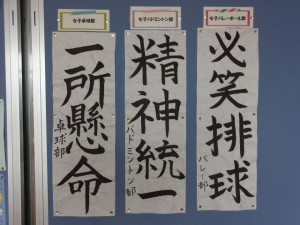 女子卓球部
一所懸命
卓球部
女子バドミントン部
精神統一
バドミントン部
女子バレーボール部
必笑排球
バレー部